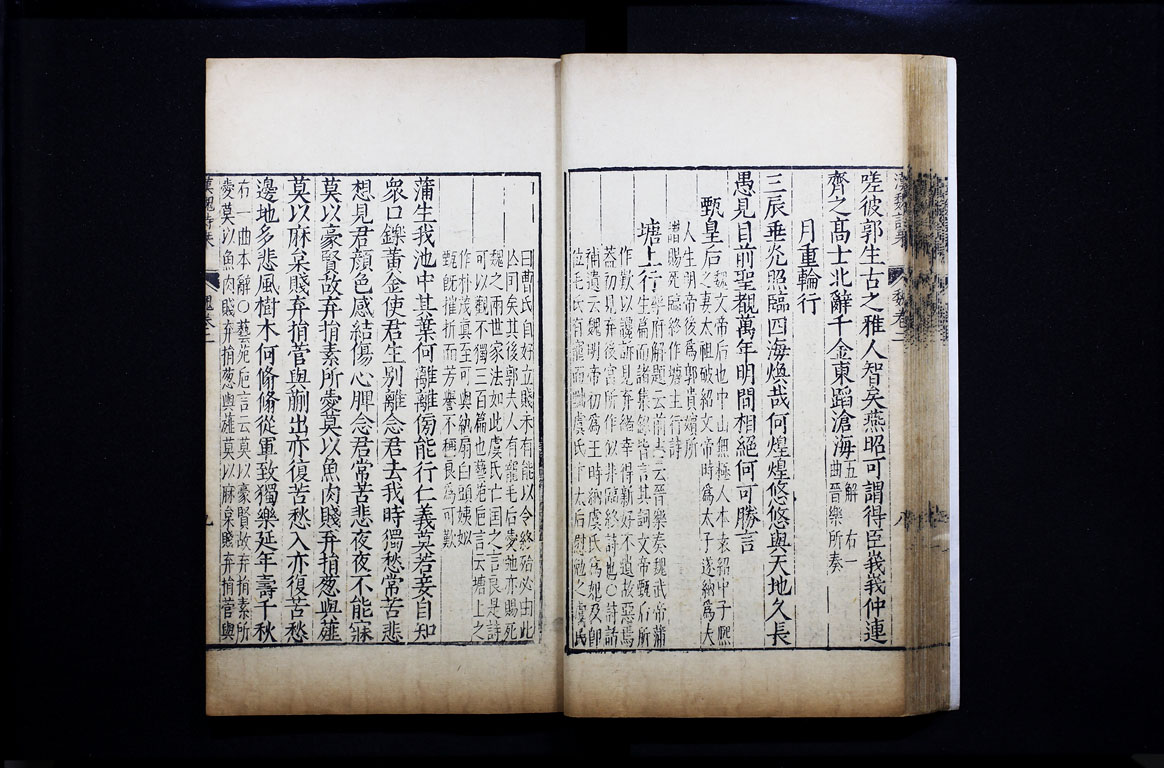 嗟彼郭生古之雅人智矣燕昭可謂得臣峩峩仲連
齊之高士北辭千金東蹈滄海五解 右一
曲晉樂所奏
月重輪行
三辰垂光照臨四海煥哉何煌煌悠悠與天地久長
愚見目前聖覩萬年明闇相絕何可勝言
甄皇后魏文帝后也中山無極人本袁紹中子熙
之妻太祖破紹文帝時爲太子遂納爲夫
人生明帝後爲郭貴嬪所
譖賜死臨終作塘上行詩
塘上行樂府解題云前志云晉樂奏魏武帝蒲
生篇而諸集錄皆言其詞文帝甄后所
作歎以讒訴見弃猶幸得新好不遺故惡焉
蓋初見弃後宮所作似非臨終詩也○詩話
補遺云魏明帝初爲王時納虞氏爲妃及即
位毛氏有寵而黜虞氏卞太后慰勉之虞氏
曰曹氏自好立賤未有能以令終殆必由此
亡國矣其後郭夫人有寵毛后愛弛亦賜死
魏之兩世家法如此虞氏亡國之言良是詩
可以觀不獨三百篇也藝苑巵言云塘上之
作朴茂真至可與紈扇白頭姨姒
甄旣摧折而芳譽不稱良爲可歎
蒲生我池中其葉何離離傍能行仁義莫若妾自知
衆口鑠黃金使君生別離念君去我時獨愁常苦悲
想見君顏色感結傷心脾念君常苦悲夜夜不能寐
莫以豪賢故弃捐素所愛莫以魚肉賤弃捐葱與薤
莫以麻枲賤弃捐菅與蒯出亦復苦愁入亦復苦愁
邊地多悲風樹木何脩脩從軍致獨樂延年壽千秋
右一曲本辭○藝苑巵言云莫以豪賢故弃捐素所
愛莫以魚肉賤弃捐葱與薤莫以麻枲賤弃捐菅與
漢魏詩集 魏卷二 九